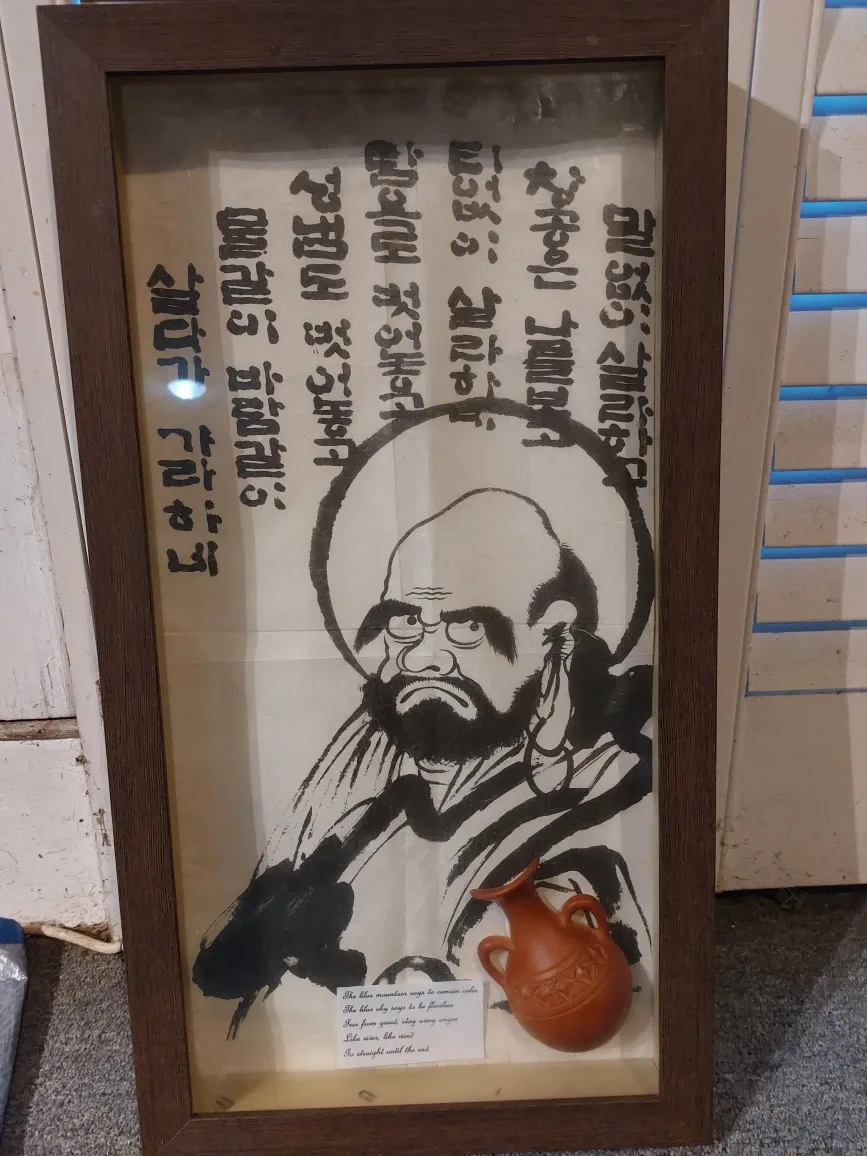 말없이 살라하고
창공은 나를보고
티없이 살라하네
탐욕도 벗어놓고
성냄도 벗어놓고
물같이 바람같이
살다가 가라하네
The blue mountain says to remain
The blue sky says to be flawless
Free from greed, stay away anger
Like river, like wind
Go straight until the end